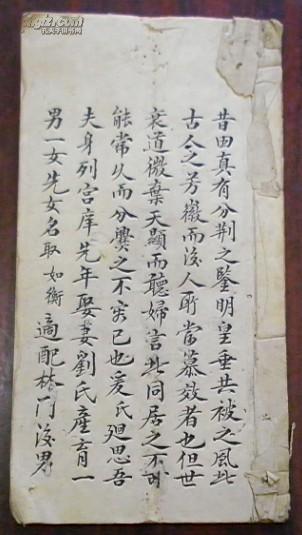 昔田真有分荆之鑒明皇垂共被之風此
古今之芳徽而後人所當慕效者也但世
衰道微棄天顯而聽婦言此同居之不
能常久而分爨之不容已也爰氏廻思吾
夫身列宫庠先年娶妻劉氏產育一
男一女先女名取如衡適配 門後男